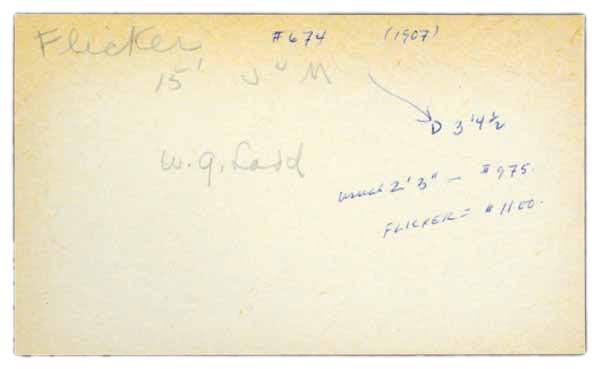 Flicker #674 (1907)
15' M
D 3'4½
W. G. Ladd
2'3" — #975.
FLICKER = #1100.